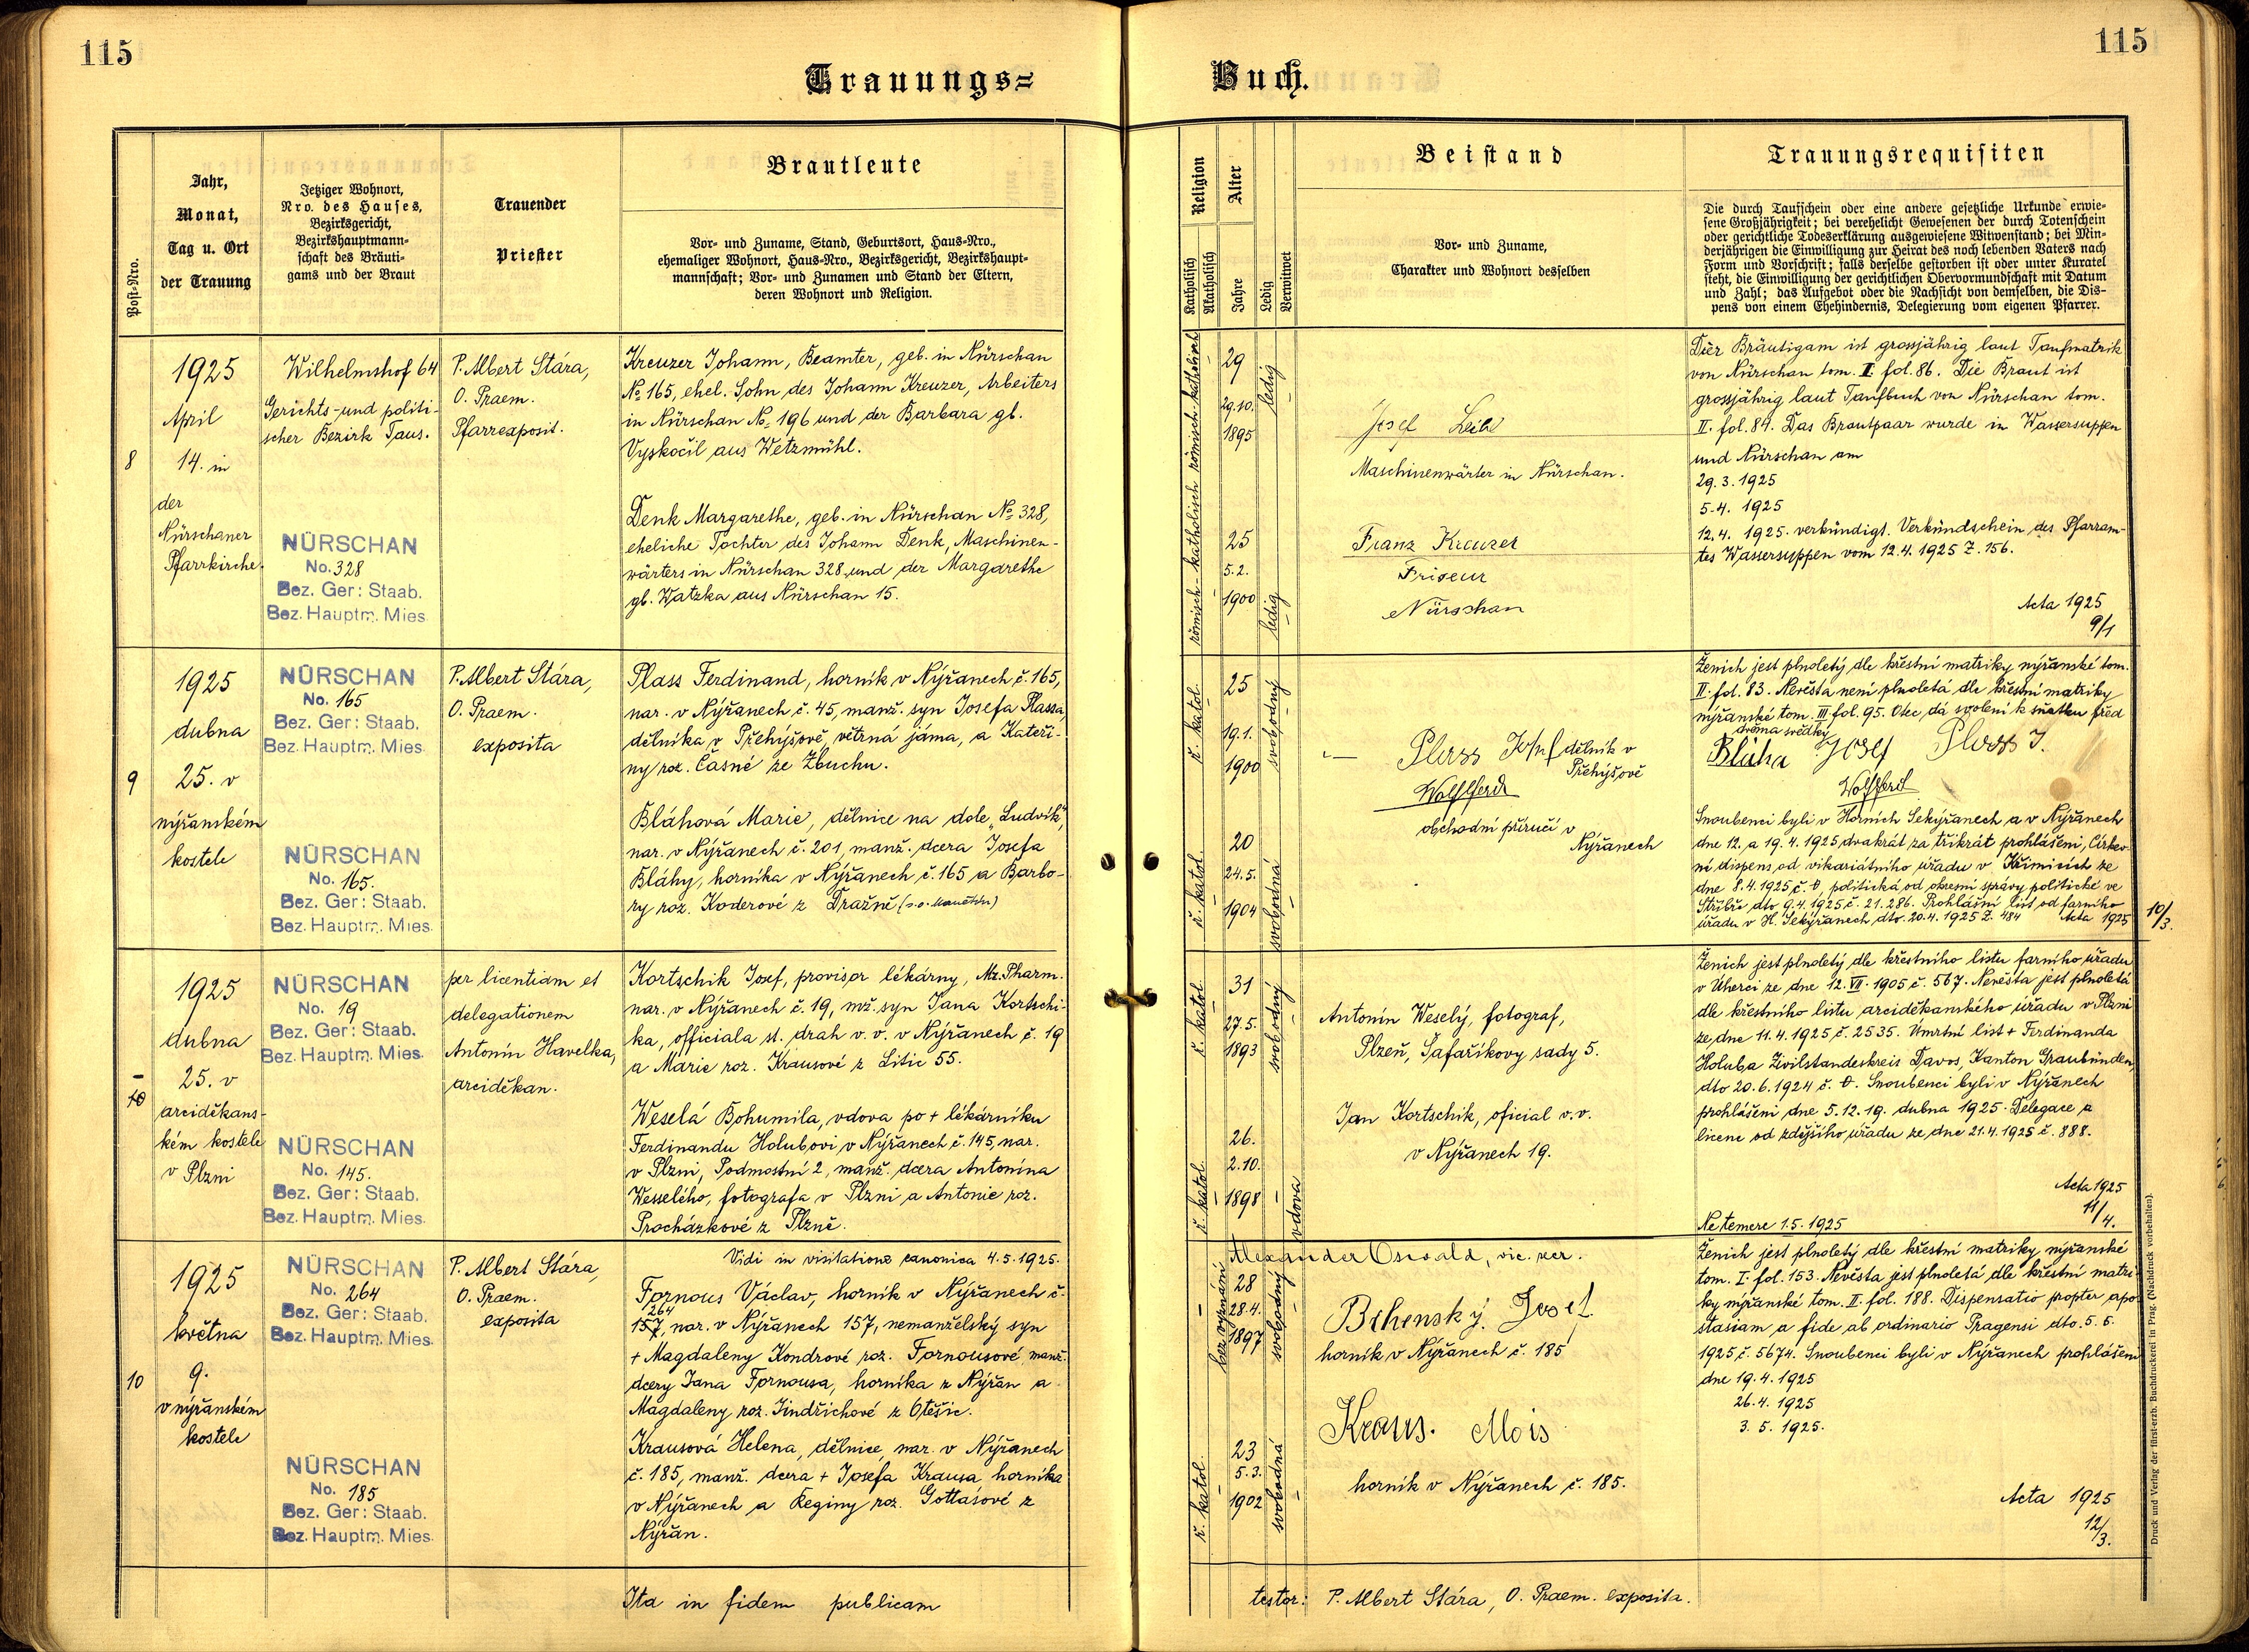 115
115
Trauungs=
Buch.
Post=Nro.
Jahr,
Monat,
Tag u. Ort
der Trauung
Jetziger Wohnort,
Nro. des Hauses,
Bezirksgericht,
Bezirkshauptmann=
schaft des Bräuti=
gams und der Braut
Trauender
Priester
Brautleute
Vor= und Zuname, Stand, Geburtsort, Haus=Nro.,
ehemaliger Wohnort, Haus=Nro., Bezirksgericht, Bezirkshaupt=
mannschaft; Vor= und Zunamen und Stand der Eltern,
deren Wohnort und Religion.
Religion
Katholisch
Akatholisch
Alter
Jahre
Ledig
Verwitwet
Beistand
Vor= und Zuname,
Charakter und Wohnort desselben
Trauungsrequisiten
Die durch Taufschein oder eine andere gesetzliche Urkunde erwie=
sene Großjährigkeit; bei verehelicht Gewesenen der durch Totenschein
oder gerichtliche Todeserklärung ausgewiesene Witwenstand; bei Min=
derjährigen die Einwilligung zur Heirat des noch lebenden Vaters nach
Form und Vorschrift; falls derselbe gestorben ist oder unter Kuratel
steht, die Einwilligung der gerichtlichen Obervormundschaft mit Datum
und Zahl; das Aufgebot oder die Nachsicht von demselben, die Dis=
pens von einem Ehehindernis, Delegierung vom eigenen Pfarrer.
8
1925
April
14. in
der
Nürschaner
Pfarrkirche.
Wilhelmshof 64
Gerichts- und politi-
scher Bezirk Taus.
NÜRSCHAN
No. 328
Bez. Ger: Staab.
Bez. Hauptm. Mies
P. Albert Stára,
O. Praem.
Pfarrexposit.
Kreuzer Johann, Beamter, geb. in Nürschan
No 165, ehel. Sohn des Johann Kreuzer, Arbeiters
in Nürschan No 196 und der Barbara gb.
Vyskočil aus Wetzmühl.
Denk Margarethe, geb. in Nürschan No 328,
eheliche Tochter des Johann Denk, Maschinen-
wärters in Nürschan 328 und der Margarethe
gb. Watzka aus Nürschan 15.
römisch-katholisch römisch-katholisch
29
29.10.
1895
ledig
25
5.2.
1900
ledig
Josef
Maschinenwärter in Nürschan.
Franz Kreuzer
Friseur
Nürschan
Der Bräutigam ist grossjährig laut Taufmatrik
von Nürschan tom. II fol. 86. Die Braut ist
grossjährig laut Taufbuch von Nürschan tom.
II. fol. 84. Das Brautpaar wurde in Wassersuppen
und Nürschan am
29. 3. 1925
5. 4. 1925
12. 4. 1925 verkündigt. Verkündschein des Pfarram-
tes Wassersuppen vom 12. 4. 1925 Z. 156.
Acta 1925
9/1
9
1925
dubna
25. v
nýřanském
kostele
NÜRSCHAN
No. 165
Bez. Ger: Staab.
Bez. Hauptm. Mies
NÜRSCHAN
No. 165.
Bez. Ger: Staab.
Bez. Hauptm. Mies.
P. Albert Stára,
O. Praem.
exposita
Plass Ferdinand, horník v Nýřanech č. 165,
nar. v Nýřanech č. 45, manž. syn Josefa Plassa,
dělníka v Přehýšově, větrná jáma, a Kateři-
ny roz. Časné ze Zbuchu.
Bláhová Marie, dělnice na dole „Ludvík“,
nar. v Nýřanech č. 201, manž. dcera Josefa
Bláhy, horníka v Nýřanech č. 165 a Barbo-
ry roz. Koderové z Dražně
ř. katol.
25
19.1.
1900
svobodný
ř. katol.
20
24.5.
1904
svobodná
Plass Josef dělník v
Přehýšově
obchodní příručí v
Nýřanech
Ženich jest plnoletý dle křestní matriky nýřanské tom.
II. fol. 83. Nevěsta není plnoletá dle křestní matriky
nýřanské tom. III fol. 95. Otec dá svolení k sňatku před
dvěma svědky
Bláha Josef Plass J.
Snoubenci byli v Horních Sekyřanech a v Nýřanech
dne 12. a 19. 4. 1925 dvakrát za třikrát prohlášeni, Církev-
ní dispens od vikariátního úřadu v Křimicích ze
dne 8. 4. 1925 č. 0, politická od okresní správy politické ve
Stříbře dto 9. 4. 1925 č. 21.286. Prohlášní list od farního
úřadu v H. Sekyřanech dto. 20. 4. 1925 Z. 484 Acta 1925
10/3.
10
1925
dubna
25. v
arciděkans-
kém kostele
v Plzni
NÜRSCHAN
No. 19
Bez. Ger: Staab.
Bez. Hauptm. Mies.
NÜRSCHAN
No. 145.
Bez. Ger: Staab.
Bez. Hauptm. Mies.
per licentiam et
delegationem
Antonín Havelka,
arciděkan.
Kortschik Josef, provisor lékárny, Mr. Pharm.
nar. v Nýřanech č. 19, mž. syn Jana Kortschi-
ka, officiala st. drah v. v. v Nýřanech č. 19
a Marie roz. Krausové z Litic 55.
Weselá Bohumila, vdova po + lékárníku
Ferdinandu Holubovi v Nýřanech č. 145, nar.
v Plzni, Podmostní 2, manž. dcera Antonína
Wesselého, fotografa v Plzni a Antonie roz.
Procházkové z Plzně.
ř. katol.
31
27.5.
1893
svobodný
ř. katol.
26.
2.10.
1898
vdova
Antonín Weselý, fotograf,
Plzeň, Šafaříkovy sady 5.
Jan Kortschik, oficial v. v.
v Nýřanech 19.
Ženich jest plnoletý dle křestního listu farního úřadu
v Úherci ze dne 12. VII. 1905 č. 567. Nevěsta jest plnoletá
dle křestního listu arciděkanského úřadu v Plzni
ze dne 11. 4. 1925 č. 2535. Umrtní list + Ferdinanda
Holuba Zivilstandeskreis Davos, Kanton Graubünden,
dto 20. 6. 1924 č. 0. Snoubenci byli v Nýřanech
prohlášeni dne 5. 12. 19. dubna 1925. Delegace a
licence od zdejšího úřadu ze dne 21. 4. 1925 č. 888.
Acta 1925
11/4.
Ne temere 1. 5. 1925
Vidi in visitatione canonica 4. 5. 1925.
Alexander Oswald, vic. ser.
10
1925
května
9.
v nýřanském
kostele
NÜRSCHAN
No. 264
Bez. Ger: Staab.
Bez. Hauptm. Mies
NÜRSCHAN
No. 185
Bez. Ger: Staab.
Bez. Hauptm. Mies.
P. Albert Stára,
O. Praem.
exposita
Fornous Václav, horník v Nýřanech č.
264
157, nar. v Nýřanech 157, nemanželský syn
+ Magdaleny Kondrové roz. Fornousové, manž.
dcery Jana Fornousa, horníka z Nýřan a
Magdaleny roz. Jindřichové z Otěšic.
Krausová Helena, dělnice, nar. v Nýřanech
č. 185, manž. dcera + Josefa Krausa, horníka
v Nýřanech a Reginy roz. Gottasové z
Nýřan.
bez vyznání
28
28.4.
1897
svobodný
ř. katol.
23
5.3.
1902
svobodná
Josef
horník v Nýřanech č. 185
Kraus. Alois
horník v Nýřanech č. 185.
Ženich jest plnoletý dle křestní matriky nýřanské
tom. I. fol. 153. Nevěsta jest plnoletá dle křestní matri-
ky nýřanské tom. II. fol. 188. Dispensatio propter apo-
stasiam a fide ab ordinario Pragensi dto. 5. 5.
1925 č. 5674. Snoubenci byli v Nýřanech prohlášeni
dne 19. 4. 1925
26. 4. 1925
3. 5. 1925.
Acta 1925
12/3.
Ita in fidem publicam
testor: P. Albert Stára, O. Praem. exposita.
Druck und Verlag der fürst-erzb. Buchdruckerei in Prag. (Nachdruck vorbehalten).